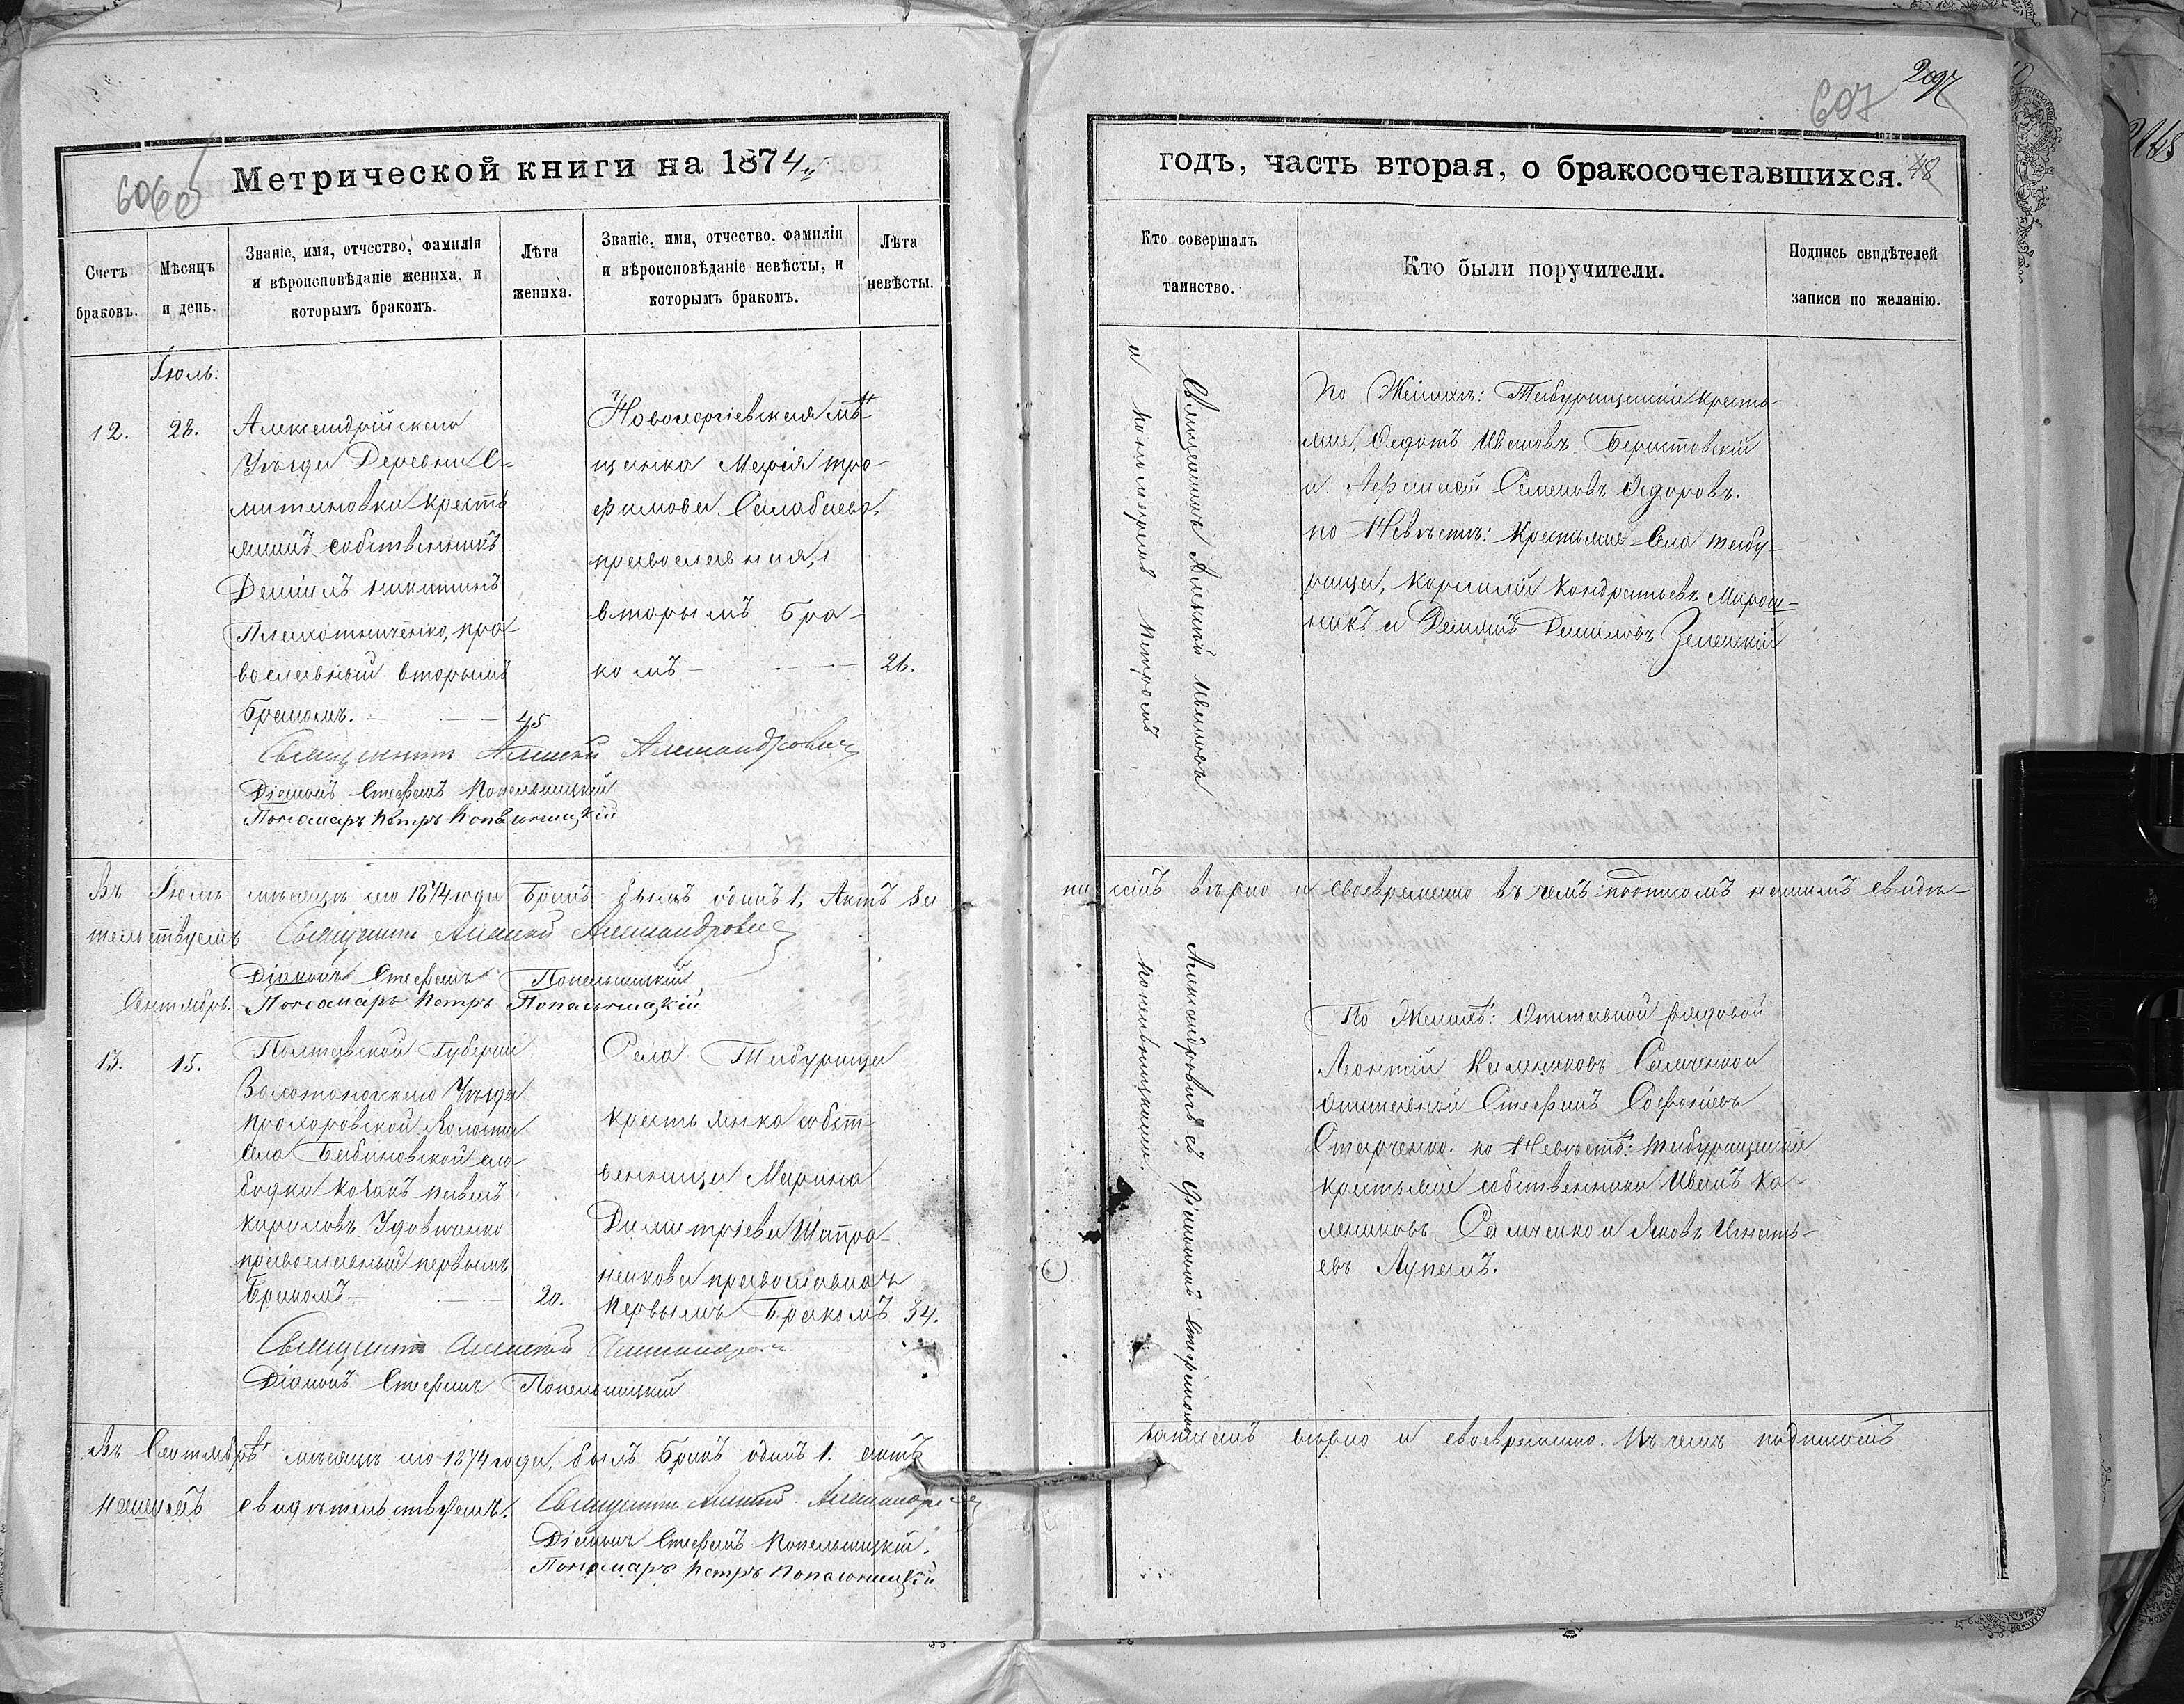 606
Метрической книги на 1874й
Счетъ браковъ.
Мѣсяцъ и день.
Званіе, имя, отчество, фамилія и вѣроисповѣданіе жениха, и которымъ бракомъ.
Лѣта жениха.
Званіе, имя, отчество, фамилія и вѣроисповѣданіе невѣсты, и которымъ бракомъ.
Лѣта невѣсты.
Іюль.
12.
28.
Александрійскаго
Уѣзда Деревни
крестья
нинъ собственникъ
Даніилъ Никитинъ
Плахотниченко, пра-
вославный вторымъ
Бракомъ. —
45
Новогеоргіевская мѣ-
щанка Марія Тро-
фимова
православная,
вторымъ Бра-
комъ —
26.
Священникъ Алексій Александровичъ
Діаконъ Стефанъ Попельницкій
Пономарь Петръ Попельницкій
Въ Іюлѣ мѣсяцѣ сего 1874 года Бракъ былъ одинъ 1, Актъ за
тельствуемъ Священникъ Алексій Александровичъ
Діаконъ Стефанъ Попельницкій
Сентябрь.
Пономарь Петръ Попельницкій
13.
15.
Полтавской Губерніи
Золотоношскаго Уѣзда
Прохоровской Волости
Села Бубновской сло-
бодки козакъ Павелъ
Кириловъ Удовиченко
православный первымъ
Бракомъ —
20.
Села Табурища
крестьянка собст-
венница Марина
Димитріева Шапра-
нкова православная
первымъ Бракомъ
34.
Священникъ Алексій
Діаконъ Стефанъ Попельницкій
Въ Сентябрѣ мѣсяцѣ сего 1874 года, былъ Бракъ одинъ 1. актъ
нашимъ свидѣтельствуемъ. Священникъ Алексій Александровичъ
Діаконъ Стефанъ Попельницкій.
Пономарь Петръ Попельницкій
607
годъ, часть вторая, о бракосочетавшихся.
48
Кто совершалъ таинство.
Кто были поручители.
Подпись свидѣтелей записи по желанію.
Священникъ Алексій Ивановъ
и пономаремъ Петромъ
По Женихѣ: Табурищанскіе кресть-
яне, Федотъ Ивановъ Берестовскій
и Афанасій Семеновъ Федоровъ.
по Невѣстѣ: крестьяне Села Табу-
рища, Корнилій Кондратьевъ Мирош-
никъ и Демянъ Даниловъ Зеленскій
писанъ вѣрно и своевременно въ чемъ подписомъ нашимъ свидѣ-
Александровичъ съ діакономъ Стефаномъ
Попельницкими.
По Женихѣ: Отставной рядовой
Леонтій Калениковъ Самченко и
отставной Стефанъ Софоніевъ
Старченко. по Невѣстѣ: Табурищанскіе
крестьяне собственники Иванъ Ка-
лениковъ Самченко и Яковъ Игнать-
евъ Лупанъ.
записанъ вѣрно и своевременно. Въ чемъ подписомъ